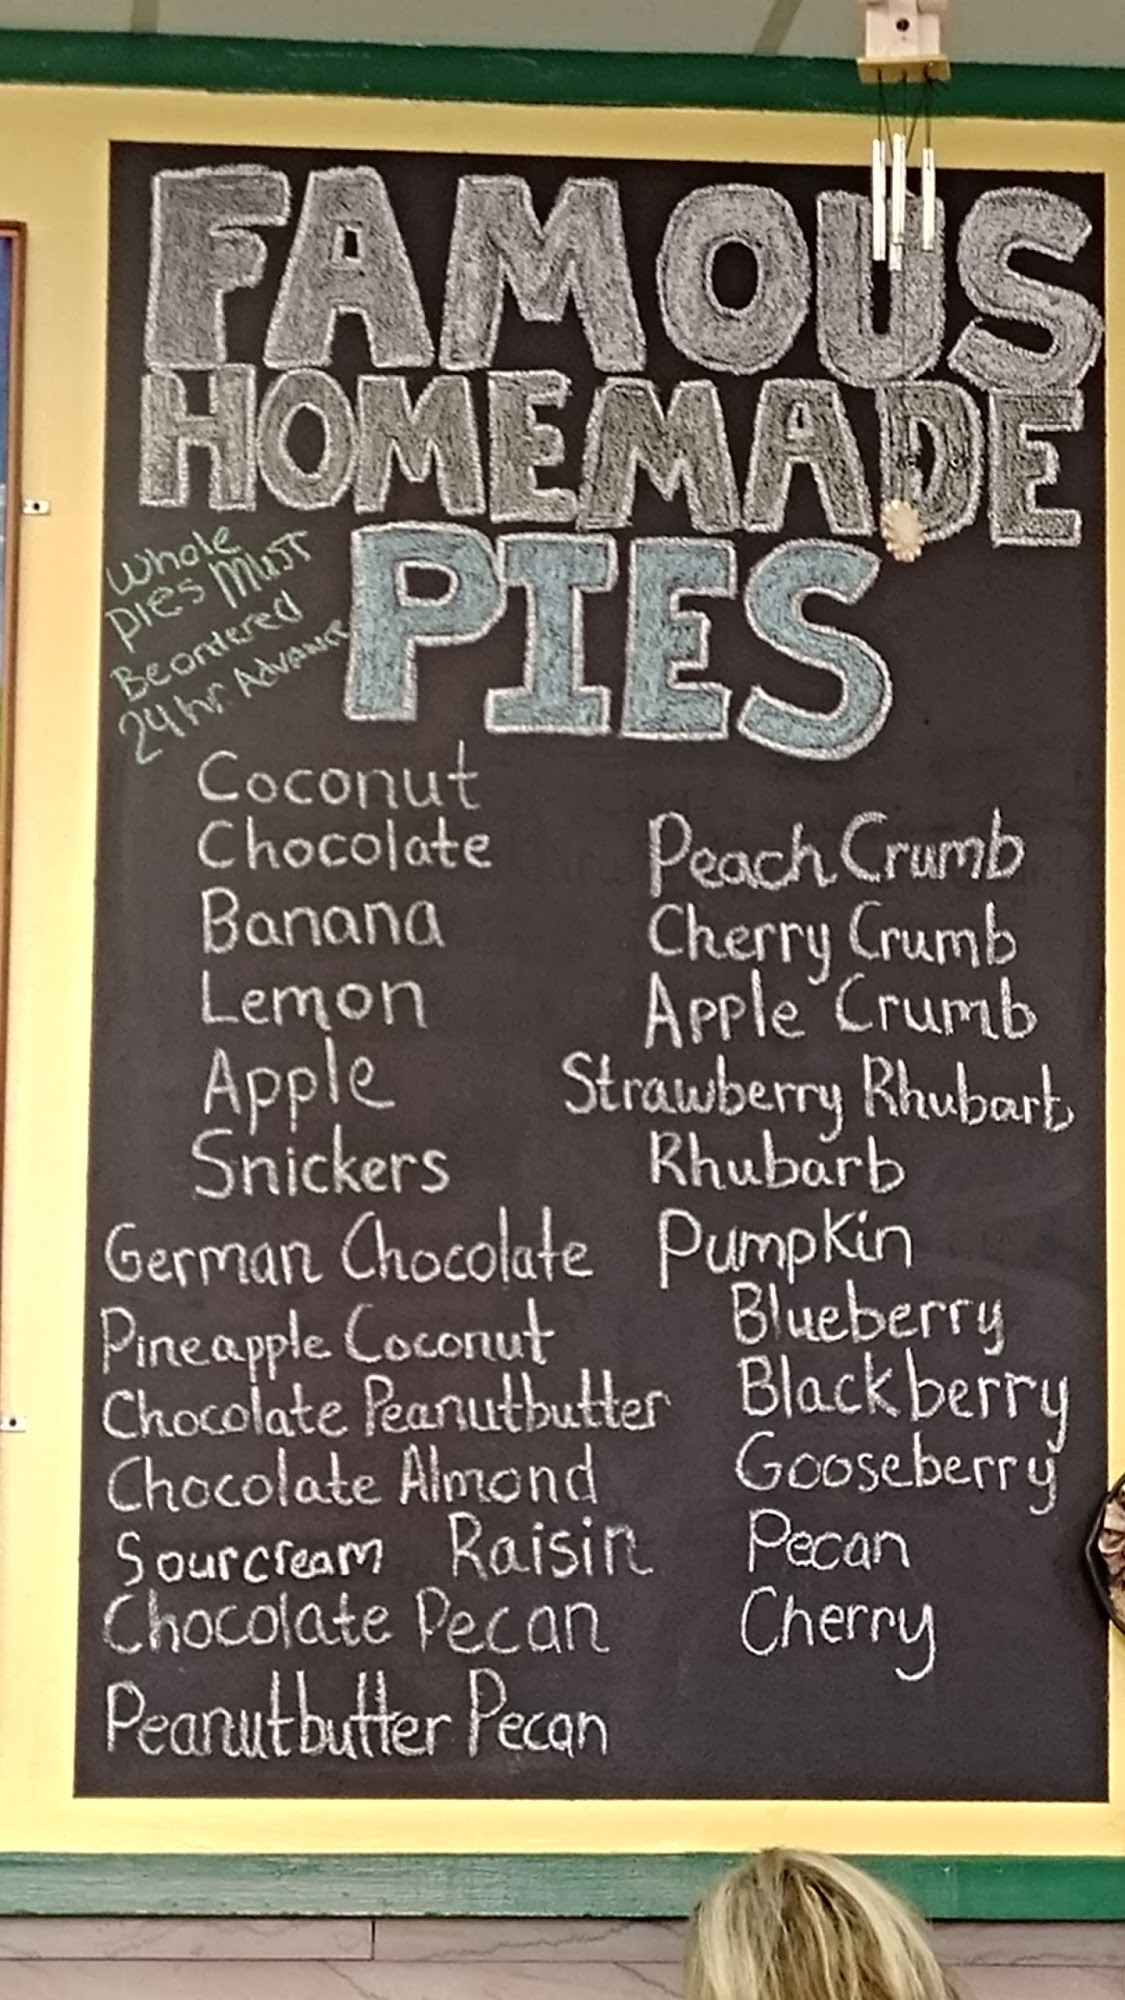 FAMOUS
HOMEMADE
PIES
Whole
pies Must
Be ordered
24 hr Advance
Coconut
Chocolate
Banana
Lemon
Apple
Snickers
German Chocolate
Pineapple Coconut
Chocolate Peanutbutter
Chocolate Almond
Sourcream Raisin
Chocolate Pecan
Peanutbutter Pecan
Peach Crumb
Cherry Crumb
Apple Crumb
Strawberry Rhubarb
Rhubarb
Pumpkin
Blueberry
Blackberry
Gooseberry
Pecan
Cherry